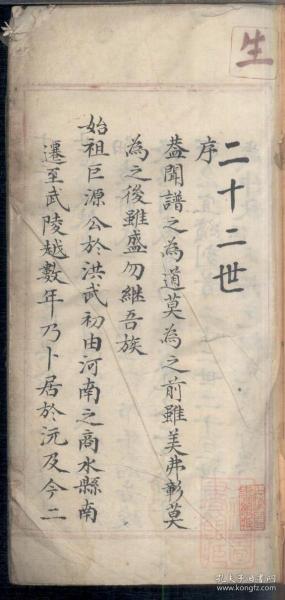 生
二十二世
序
葢聞譜之為道莫為之前雖美弗彰莫
為之後雖盛勿継吾族
始祖巨源公於洪武初由河南之商水縣南
遷至武陵越數年乃卜居於沅及今二
孔夫子旧书网
www.kongfz.com